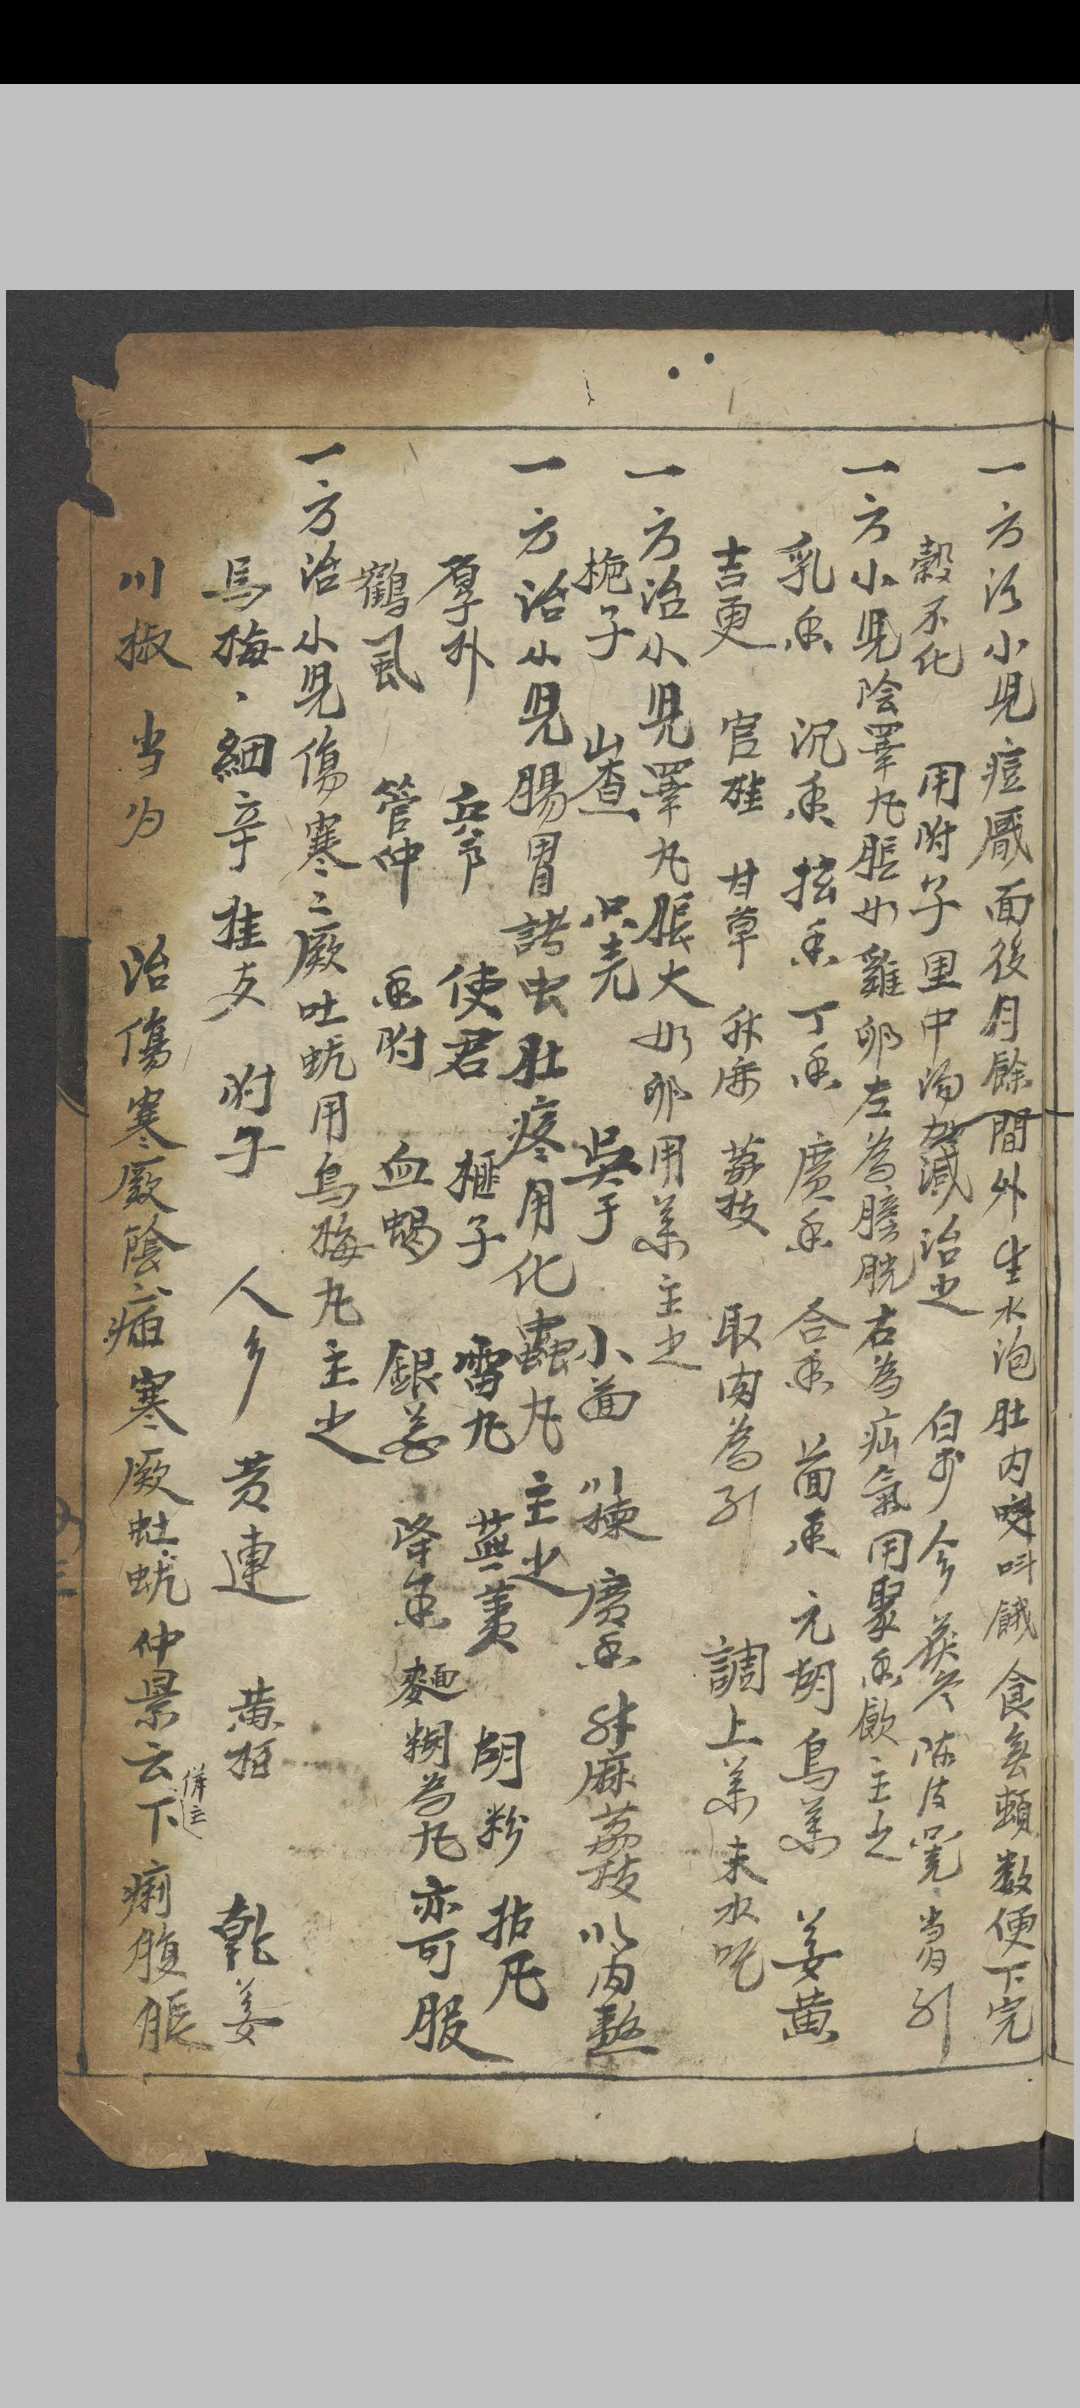 一方治小児痘属面後月餘間外生水泡肚内哭叫餓食無頓数便下完
穀不化 用附子里中湯加減治之 白朮 今 茯苓 陈皮 売 引
一方小児陰睪丸脹如雞卵左為膀胱右為疝氣用聚香飲主之
乳香 沉香 弦香 丁香 廣香 合香 茴香 元胡 烏薬 姜黄
吉更 官硅 甘草 升麻 荔枝 取肉為引 調上薬末水吃
一方治小児睪丸脹大如卵用薬主之
梔子 山查 只壳 吳于 小茴 川楝 廣香 升麻 荔枝 以内熬
一方治小児腸胃諸虫肚疼用化蟲丸主之
厚朴 兵郎 使君 榧子 雷丸 蕪荑 胡粉 拈凡
鶴虱 管仲 香附 血蝎 銀茱 降香 麵糊為丸亦可服
一方治小児傷寒之厥吐蚘用烏梅丸主之
烏梅、細辛 挂支 附子 人参 黄連 黄栢 乾姜
川椒 当为 治傷寒厥陰症寒厥吐蚘仲景云下痢腹脹
併主